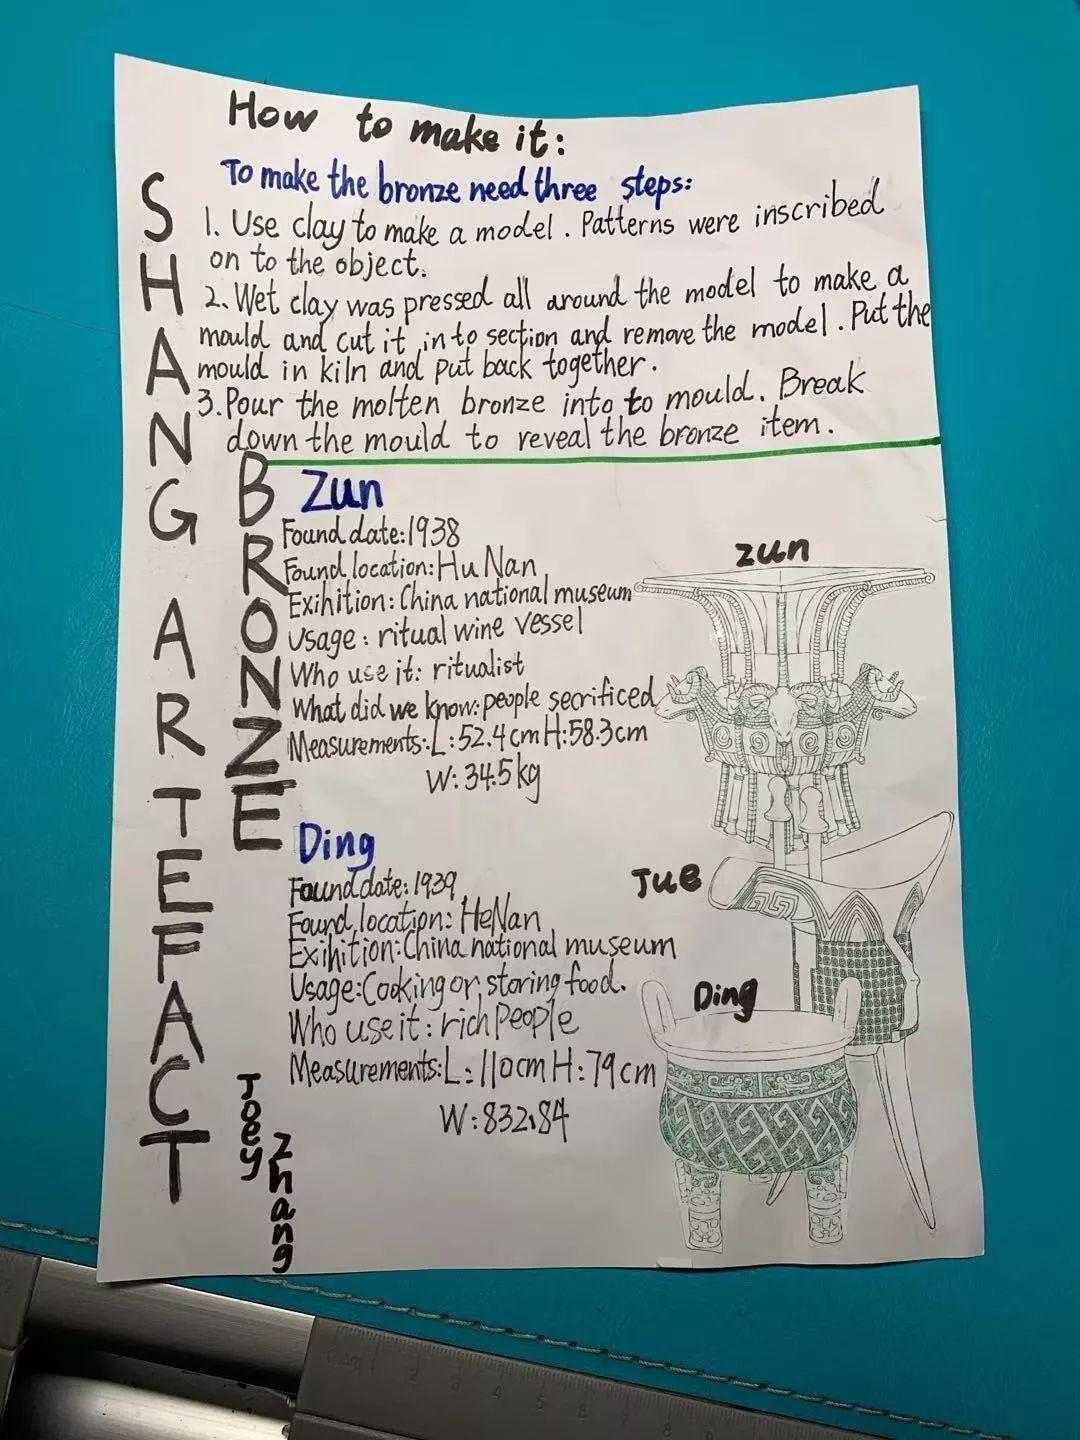 How to make it:
To make the bronze need three steps:
1. Use clay to make a model. Patterns were inscribed
on to the object.
2. Wet clay was pressed all around the model to make a
mould and cut it into section and remove the model. Put the
mould in kiln and put back together.
3. Pour the molten bronze into to mould. Break
down the mould to reveal the bronze item.
SHANG ARTEFACT
BRONZE
Zun
Found date: 1938
Found location: Hu Nan
Exihition: China national museum
Usage: ritual wine vessel
Who use it: ritualist
What did we know: people secrificed
Measurements: L: 52.4cm H: 58.3cm
W: 34.5kg
Ding
Found date: 1939
Found location: HeNan
Exihition: China national museum
Usage: Cooking or storing food.
Who use it: rich People
Measurements: L: 110cm H: 79cm
W: 832.84
Joey
Zhang
zun
Jue
Ding
0 cm 1 2 3 4 5 6 7 8